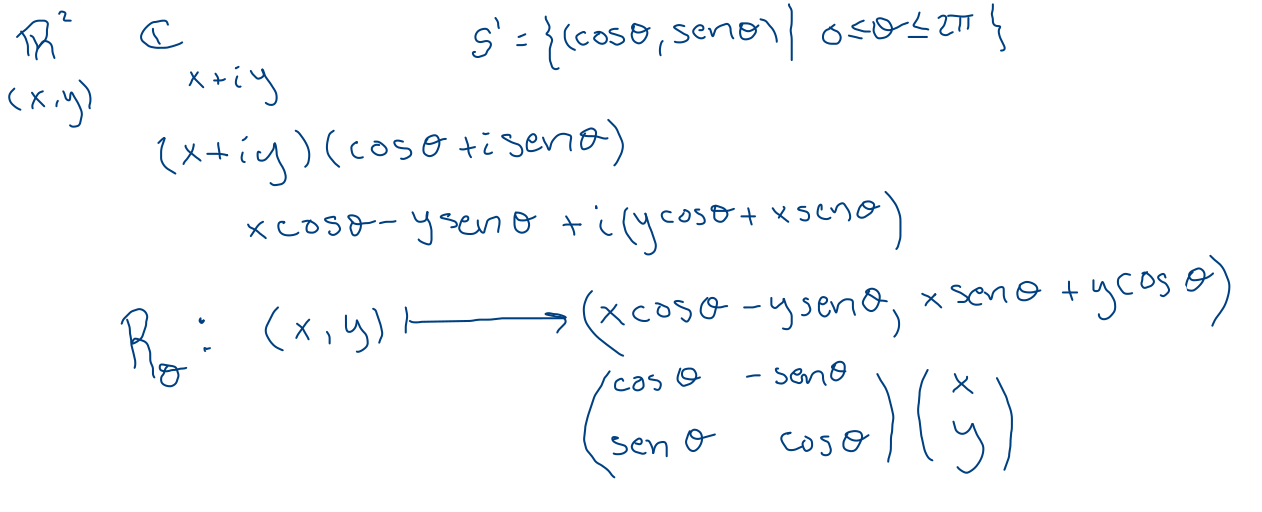 ℝ² ℂ S¹ = {(cosθ, senθ) | 0≤θ≤2π}
(x,y) x+iy
(x+iy)(cosθ+isenθ)
xcosθ-ysenθ + i(ycosθ+xsenθ)
R_θ : (x,y) ⟼ (xcosθ-ysenθ, xsenθ+ycosθ)
(cosθ -senθ) (x)
(senθ cosθ) (y)